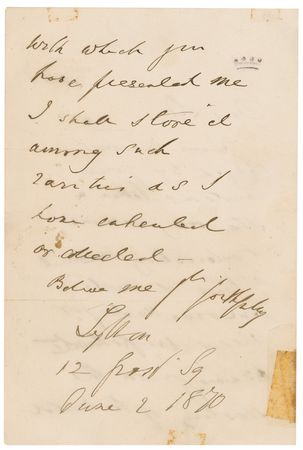 with which you
have presented me
I shall store it
among such
rarities as I
have inherited
or collected –
Believe me yrs faithfully
Lytton
12 Grosr Sq
June 2 1870